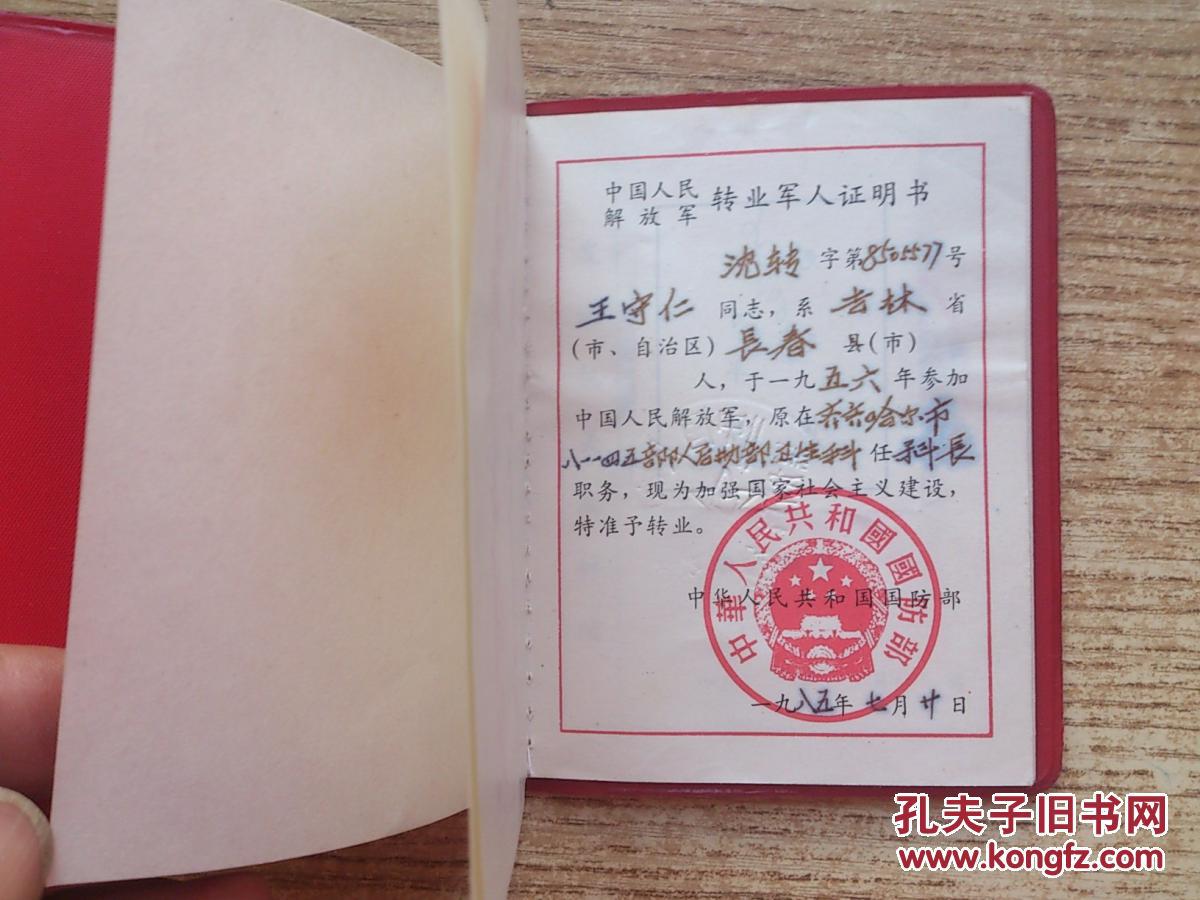 中国人民
解放军
转业军人证明书
沈转字第8505577号
王守仁同志，系吉林省
（市、自治区）長春县（市）
人，于一九五六年参加
中国人民解放军，原在齐齐哈尔市
八一一四五部队后勤部卫生科任科長
职务，现为加强国家社会主义建设，
特准予转业。
中华人民共和国国防部
中華人民共和國國防部
一九八五年七月廿日
孔夫子旧书网
www.kongfz.com